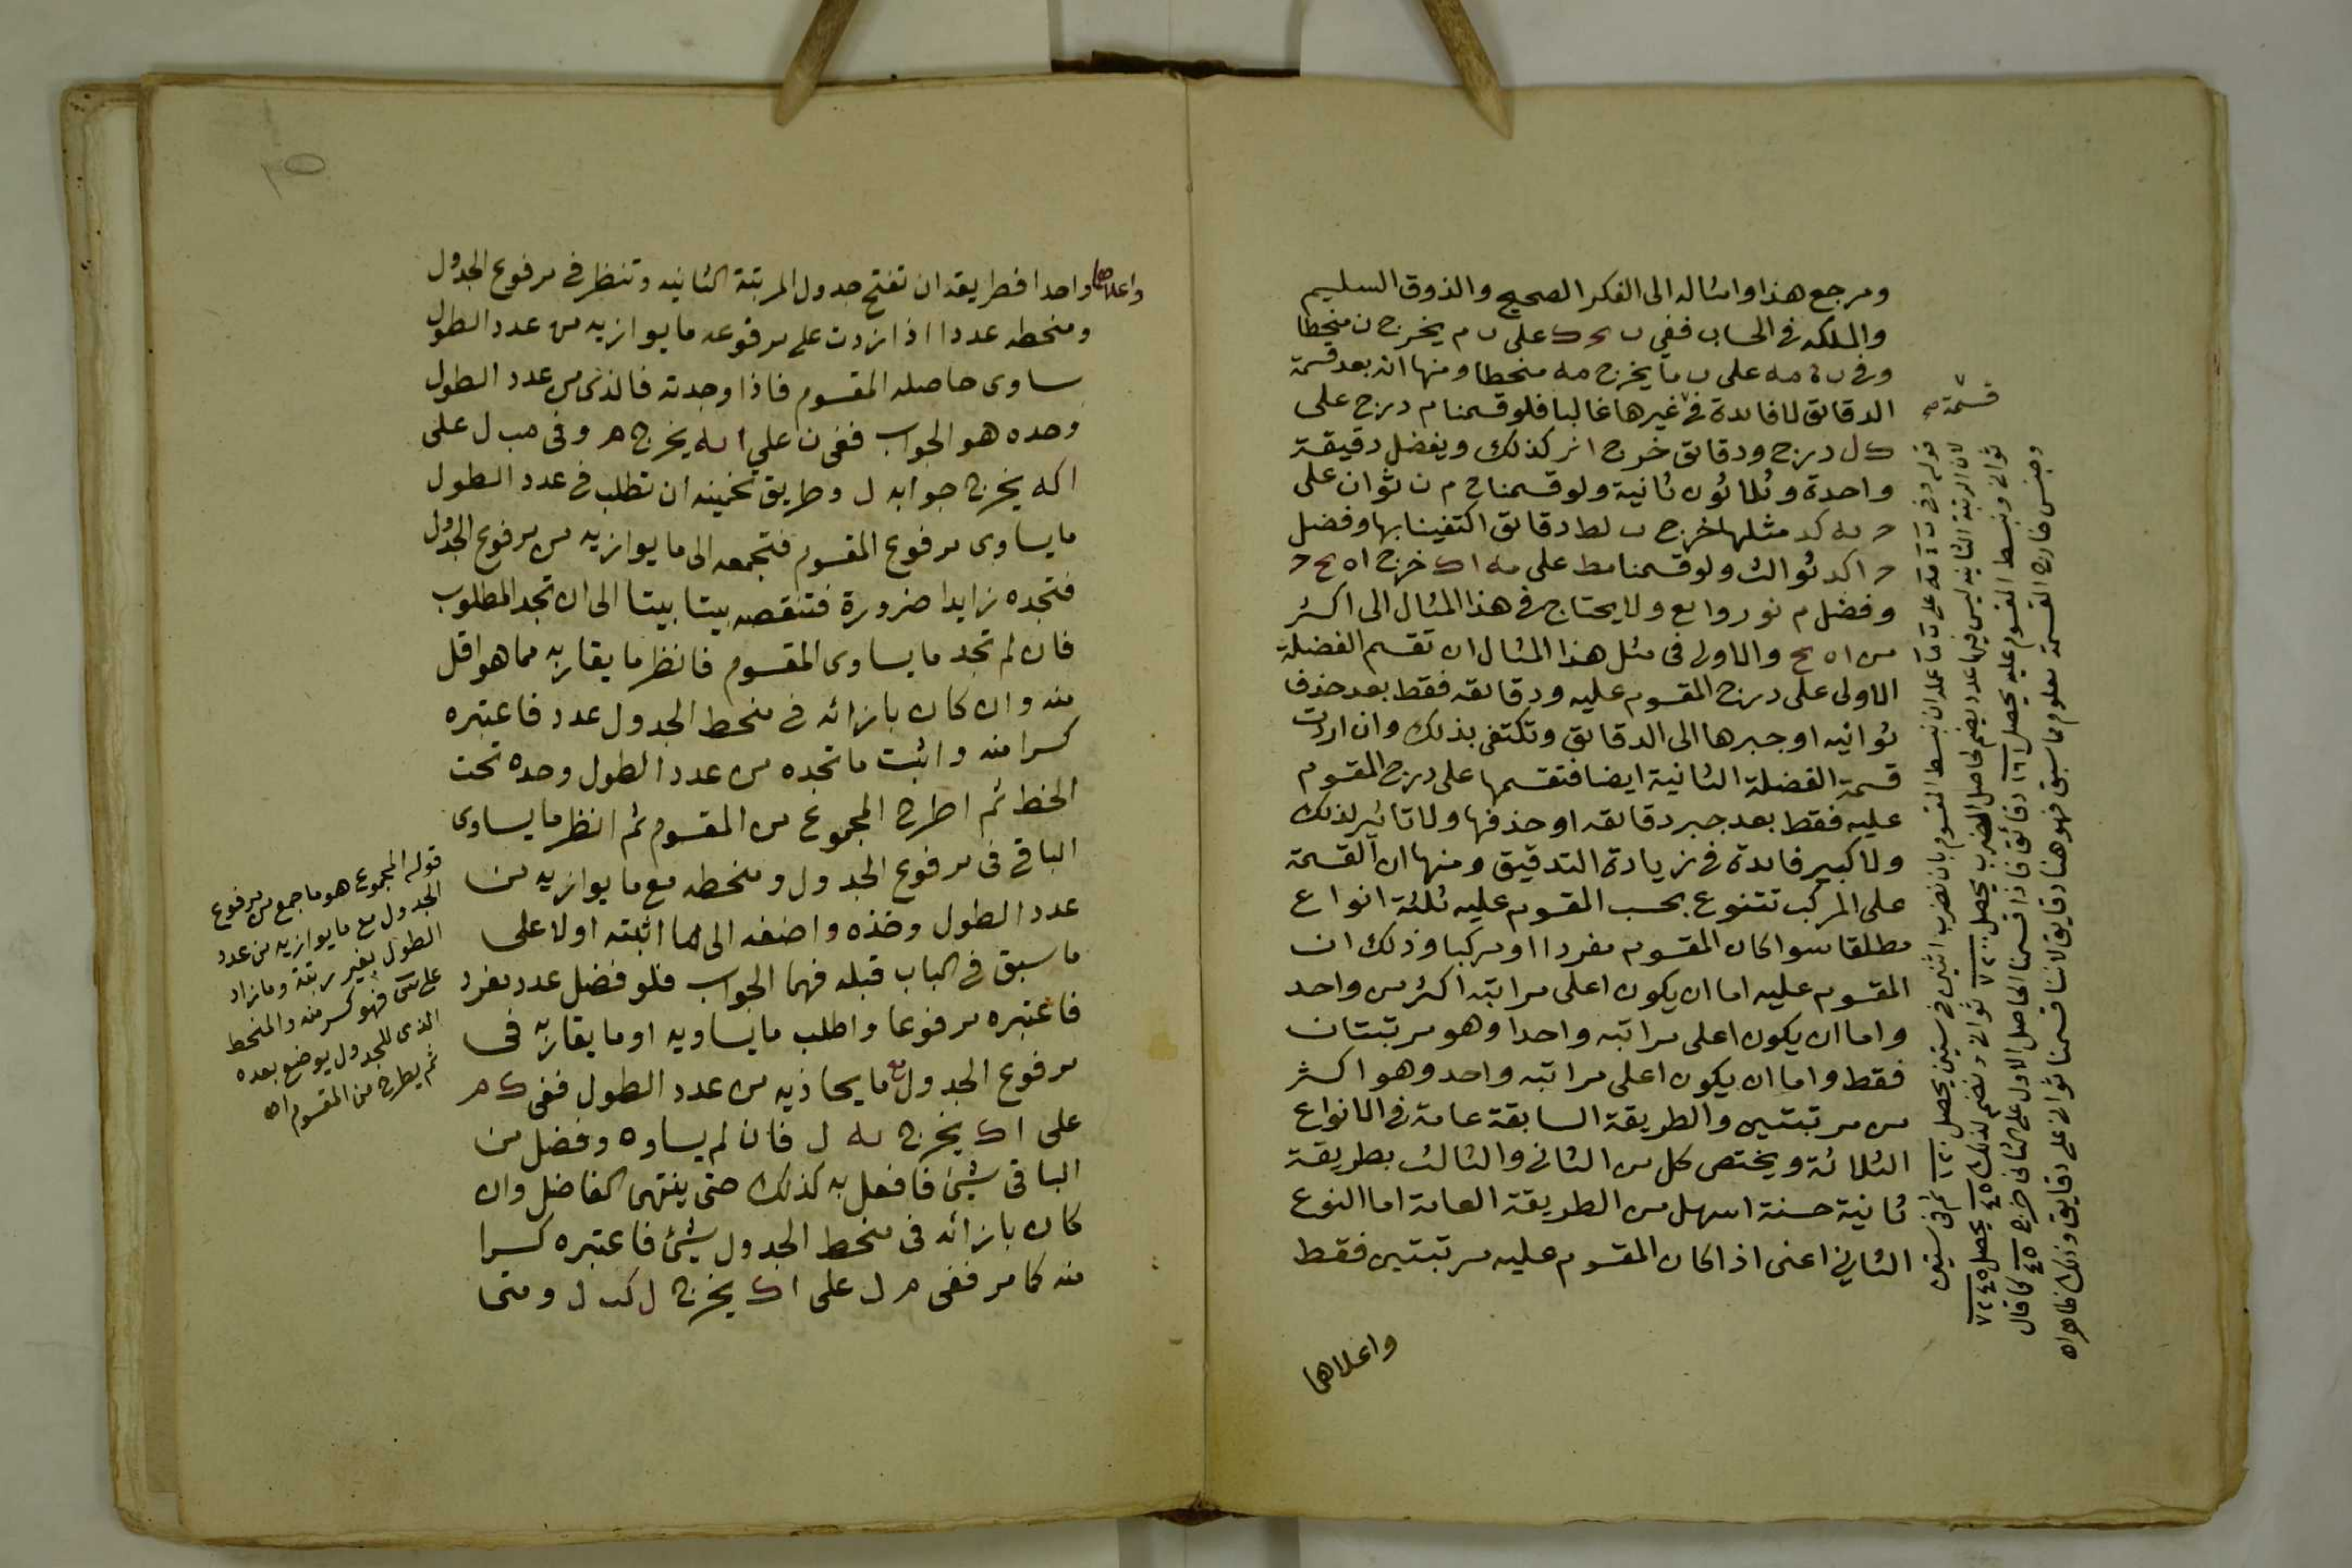 ومرجع هذا وامثاله الى الفكر الصحيح والذوق السليم
والملكه فى الحساب ففى ب ك على ب م يخرج ن منحطا
وفى ب ه مه على ب ما يخرج مه منحطا ومنها انه بعد قسمة
الدقائق لا فايدة فى غيرها غالبا فلو قسمنا م درج على
ك ل درج ودقائق خرج ا نر كذلك ويفضل دقيقة
واحدة وثلاثون ثانية ولو قسمنا ح م ن ثوان على
ح يه كد مثلها خرج ب لط دقائق اكتفينا بها وفضل
ح اكد ثوالث ولو قسمنا مط على مه ا ك خرج ا ه ح ح
وفضل م نو روابع ولا يحتاج فى هذا المثال الى اكثر
من ا ه ح والاولى فى مثل هذا المثال ان تقسم الفضلة
الاولى على درج المقسوم عليه ودقائقه فقط بعد حذف
ثوانيه او جبرها الى الدقائق وتكتفى بذلك وان اردت
قسمة الفضلة الثانية ايضا فتقسمها على درج المقسوم
عليه فقط بعد جبر دقائقه او حذفها ولا تاثير لذلك
ولا كبير فايدة فى زيادة التدقيق ومنها ان القسمة
على المركب تتنوع بحسب المقسوم عليه ثلثة انواع
مطلقا سوا كان المقسوم مفردا او مركبا وذلك ان
المقسوم عليه اما ان يكون اعلى مراتبه اكثر من واحد
واما ان يكون اعلى مراتبه واحدا وهو مرتبتان
فقط واما ان يكون اعلى مراتبه واحد وهو اكثر
من مرتبتين والطريقة السابقة عامة فى الانواع
الثلاثة ويختص كل من الثانى والثالث بطريقة
ثانية حسنة اسهل من الطريقة العامة اما النوع
الثانى اعنى اذا كان المقسوم عليه مرتبتين فقط
واعلاها
قسمة
قوله وفى ب ه مه على ب ما عمله ان نبسط المقسوم بان نضرب اثنين فى ستين يحصل ١٢٠ ثم فى ستين
لان الرتبة الثانية ليس فيها عدد يضم لحاصل الضرب يحصل ٧٢٠٠ ثوان ونضم لذلك ٤٥ يحصل ٧٢٤٥
ثوان ونبسط المقسوم عليه يحصل ١٦١ دقائق فاذا قسمنا الحاصل الاول على الثانى خرج ٤٥ كما قال
وجنس خارج القسمة معلوم مما سبق فهو هنا دقايق لاننا قسمنا ثوان على دقايق وذلك ظاهر اه
واعلاها
واحدا فطريقه ان تفتح جدول المرتبة الثانيه وتنظر فى مرفوع الجدول
ومنحطه عددا اذا زدت على مرفوعه ما يوازيه من عدد الطول
ساوى حاصله المقسوم فاذا وجدته فالذى من عدد الطول
وحده هو الجواب ففى ن على ا يه يخرج م وفى مب ل على
اكه يخرج جوابه ل وطريق تخمينه ان تطلب فى عدد الطول
ما يساوى مرفوع المقسوم فتجمعه الى ما يوازيه من مرفوع الجدول
فتجده زايدا ضرورة فتنقصه بيتا بيتا الى ان تجد المطلوب
فان لم تجد ما يساوى المقسوم فانظر ما يقاربه مما هو اقل
منه وان كان بازائه فى منحط الجدول عدد فاعتبره
كسرا منه واثبت ما تجده من عدد الطول وحده تحت
الخط ثم اطرح المجموع من المقسوم ثم انظر ما يساوى
الباقى فى مرفوع الجدول ومنحطه مع ما يوازيه من
عدد الطول وخذه واضفه الى ما اثبته اولا على
ما سبق فى الباب قبله فهما الجواب فلو فضل عدد مفرد
فاعتبره مرفوعا واطلب ما يساويه او ما يقاربه فى
مرفوع الجدول مع ما يحاذيه من عدد الطول ففى ك م
على ا ك يخرج يه ل فان لم يساوه وفضل من
الباقى شيئ فافعل به كذلك حتى ينتهى الفاضل وان
كان بازائه فى منحط الجدول شيئ فاعتبره كسرا
منه كما مر ففى م ل على ا ك يخرج ل كب ل ومتى
قوله المجموع هو ما جمع من مرفوع
الجدول مع ما يوازيه من عدد
الطول بغير رتبة وما زاد
على فهو كسر منه والمنحط
الذى للجدول يوضع بعده
ثم يطرح من المقسوم اه